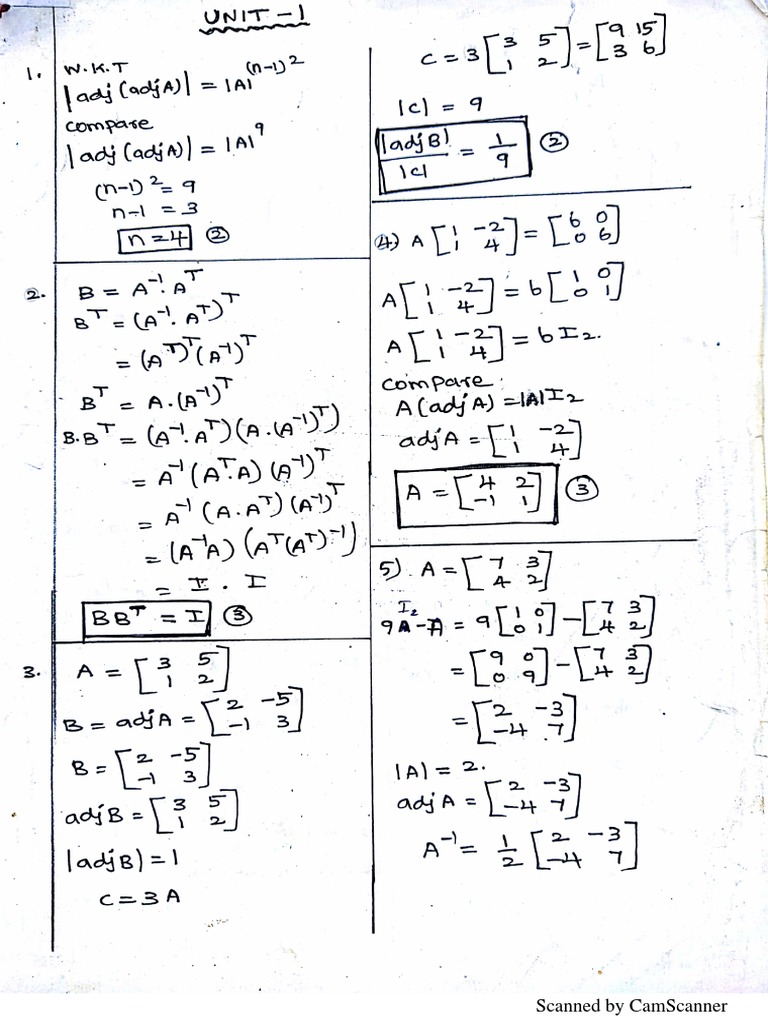 UNIT - 1
1. W.K.T
|adj (adj A)| = |A|^(n-1)^2
compare
|adj (adj A)| = |A|^9
(n-1)^2 = 9
n-1 = 3
n=4 ②
2. B = A^-1. A^T
B^T = (A^-1. A^T)^T
= (A^T)^T (A^-1)^T
B^T = A.(A^-1)^T
B.B^T = (A^-1. A^T)(A.(A^-1)^T)
= A^-1 (A^T.A) (A^-1)^T
= A^-1 (A.A^T) (A^-1)^T
= (A^-1A) (A^T(A^T)^-1)
= I . I
BB^T = I ③
3. A = [3 5
1 2]
B = adj A = [2 -5
-1 3]
B = [2 -5
-1 3]
adj B = [3 5
1 2]
|adj B| = 1
C = 3A
C = 3 [3 5 ] = [9 15]
[1 2] [3 6]
|C| = 9
|adj B| / |C| = 1/9 ②
4) A [1 -2] = [6 0]
[1 4] [0 6]
A [1 -2] = 6 [1 0]
[1 4] [0 1]
A [1 -2] = 6 I2.
[1 4]
compare:
A (adj A) = |A| I2
adj A = [1 -2
1 4]
A = [4 2] ③
[-1 1]
5) A = [7 3
4 2]
9 I2 - A = 9 [1 0] - [7 3]
[0 1] [4 2]
= [9 0] - [7 3]
[0 9] [4 2]
= [2 -3
-4 7]
|A| = 2.
adj A = [2 -3
-4 7]
A^-1 = 1/2 [2 -3
-4 7]
Scanned by CamScanner